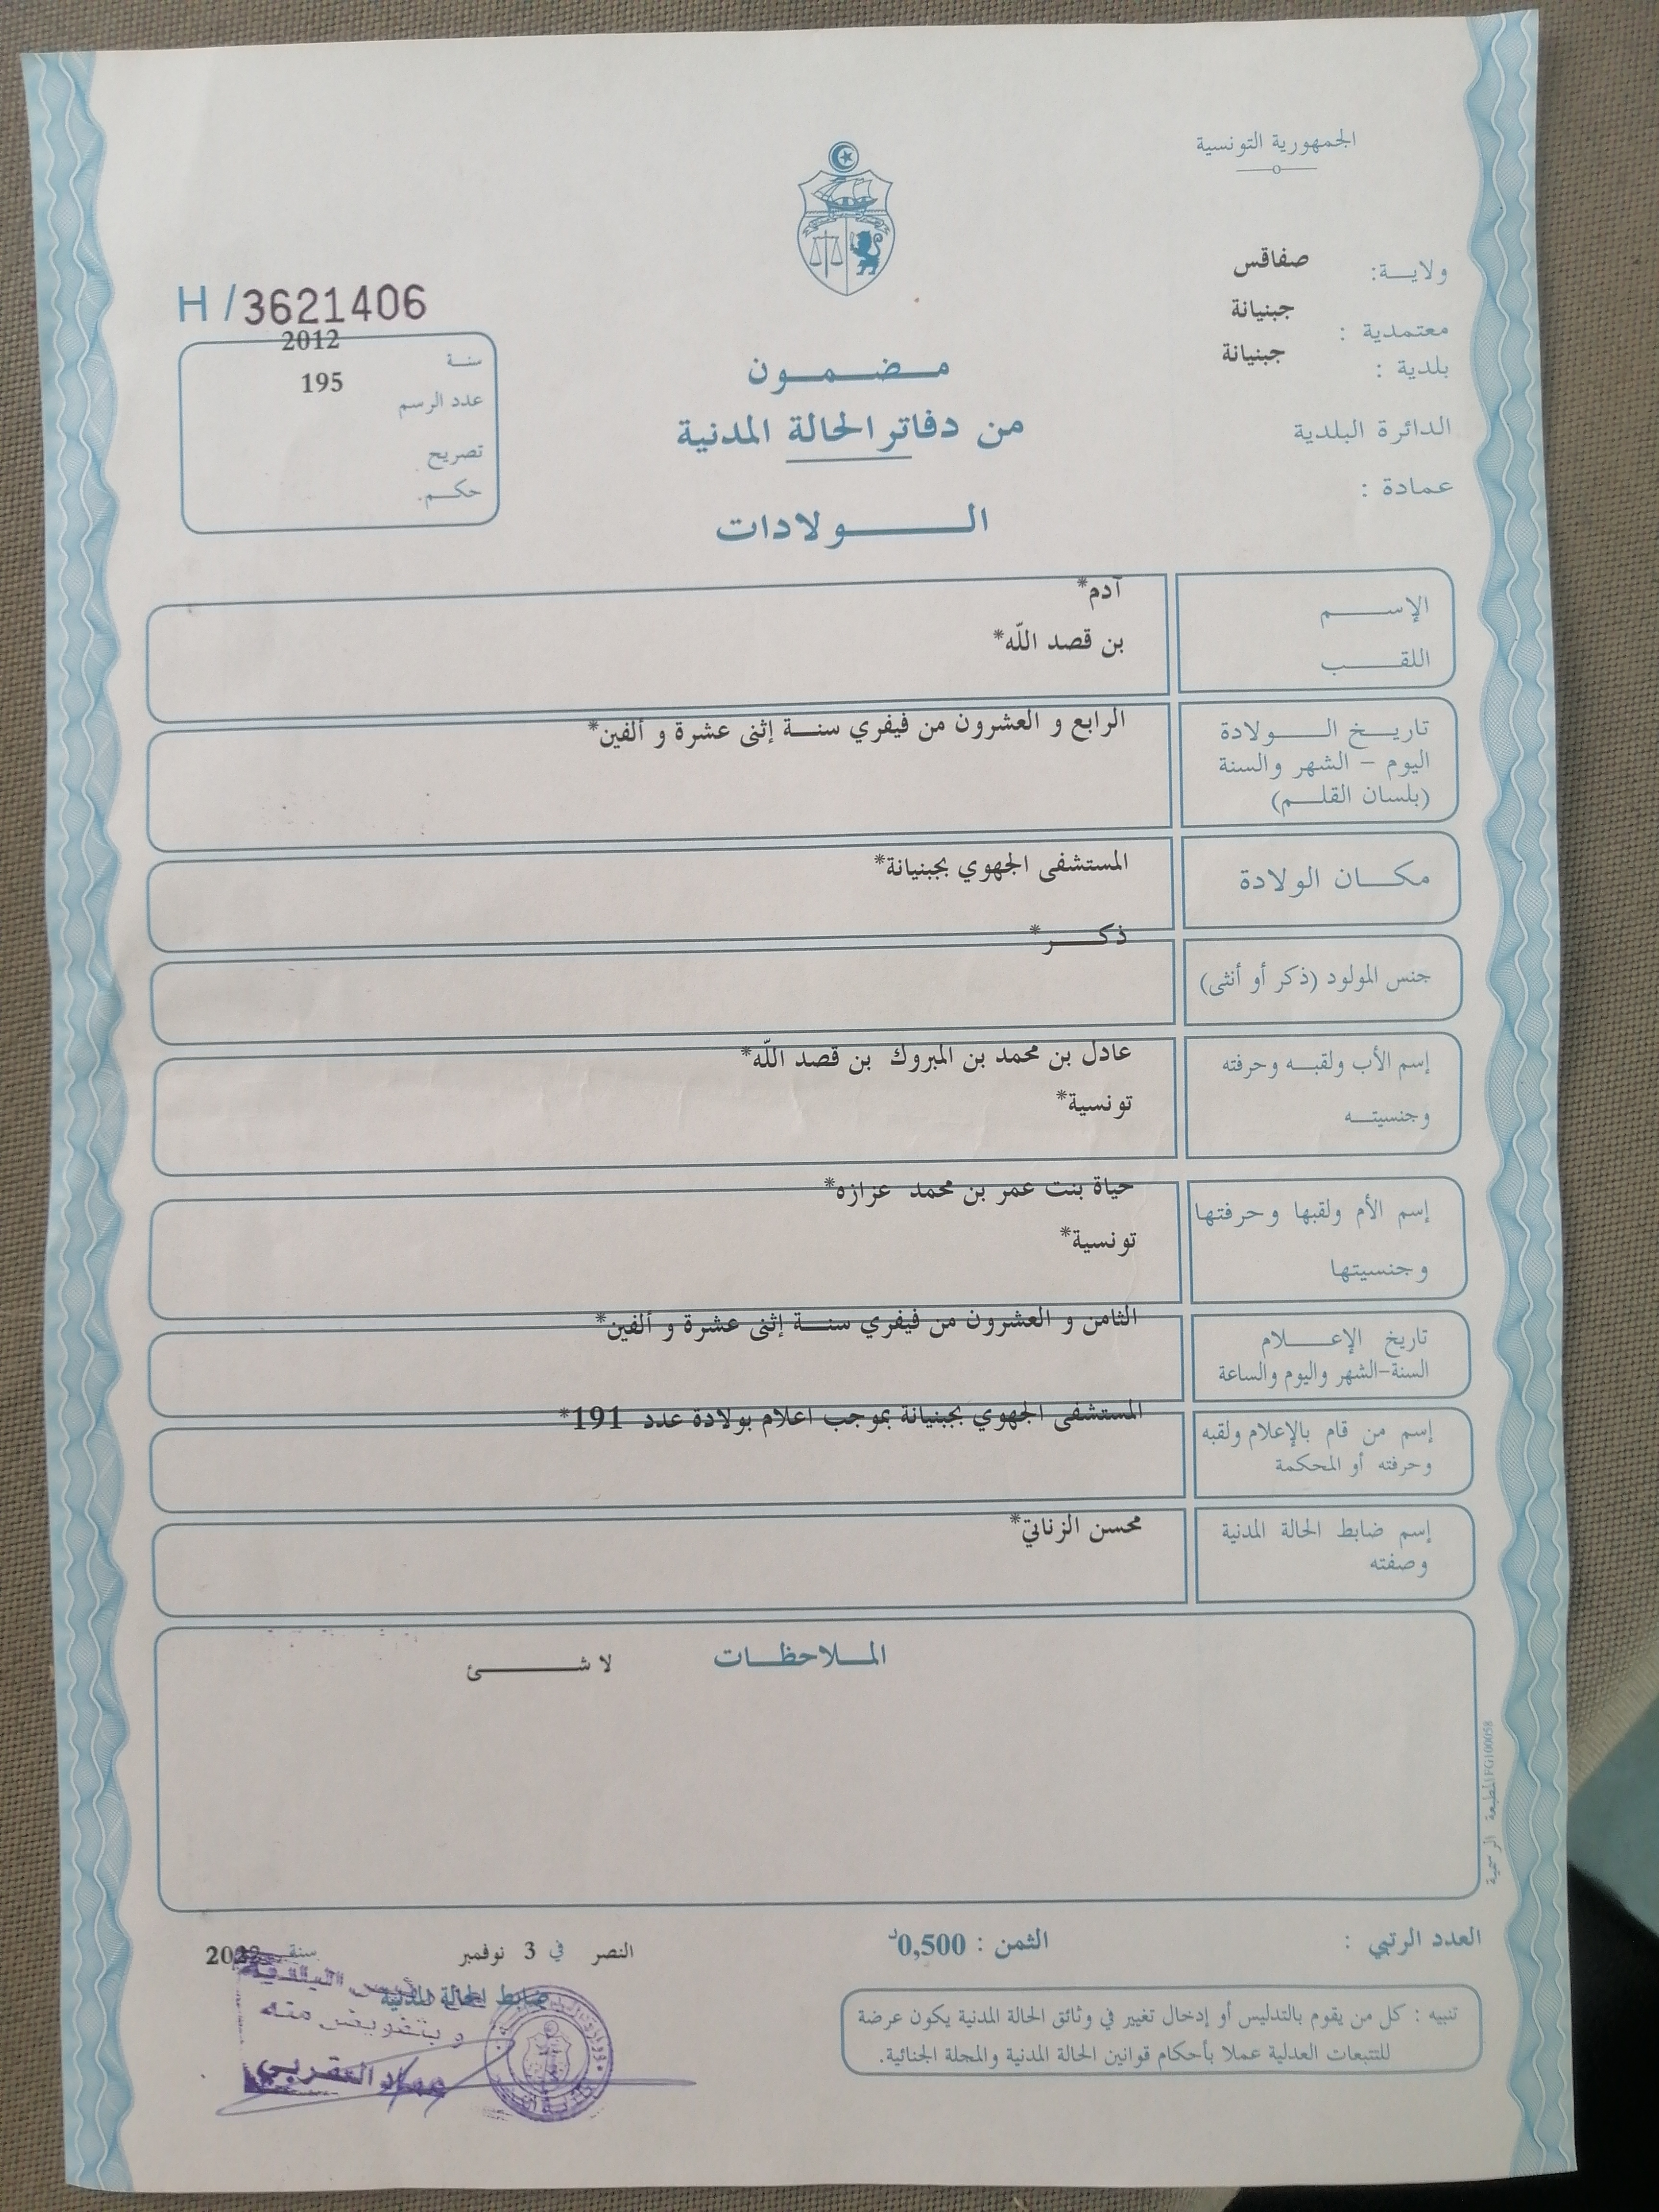 الجمهورية التونسية
ولايــة: صفاقس
معتمدية : جبنيانة
بلدية : جبنيانة
الدائرة البلدية
عمادة :
H / 3621406
سنة 2012
عدد الرسم 195
تصريح
حكم.
مضمون
من دفاتر الحالة المدنية
الولادات
الإسم آدم*
اللقب بن قصد اللّه*
تاريخ الولادة الرابع و العشرون من فيفري سنة إثنى عشرة و ألفين*
اليوم - الشهر والسنة
(بلسان القلم)
مكان الولادة المستشفى الجهوي بجبنيانة*
جنس المولود (ذكر أو أنثى) ذكر*
إسم الأب ولقبه وحرفته عادل بن محمد بن المبروك بن قصد اللّه*
وجنسيته تونسية*
إسم الأم ولقبها وحرفتها حياة بنت عمر بن محمد عزازه*
وجنسيتها تونسية*
تاريخ الإعلام الثامن و العشرون من فيفري سنة إثنى عشرة و ألفين*
السنة-الشهر واليوم والساعة
إسم من قام بالإعلام ولقبه المستشفى الجهوي بجبنيانة بموجب اعلام بولادة عدد 191*
وحرفته أو المحكمة
إسم ضابط الحالة المدنية محسن الزناتي*
وصفته
الملاحظات لا شئ
المطبعة الرسمية FG100058
العدد الرتبي : الثمن : 0,500د
النصر في 3 نوفمبر سنة 2022
ضابط الحالة المدنية
رئيس البلدية
و بتفويض منه
عماد العقربي
تنبيه : كل من يقوم بالتدليس أو إدخال تغيير في وثائق الحالة المدنية يكون عرضة
للتتبعات العدلية عملا بأحكام قوانين الحالة المدنية والمجلة الجنائية.